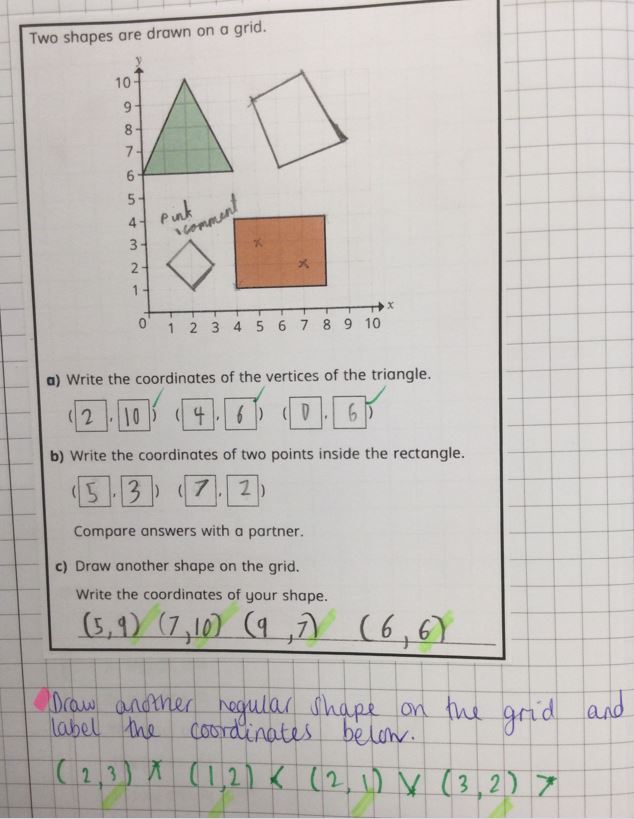 Two shapes are drawn on a grid.
y
10
9
8
7
6
5
4
3
2
1
pink
comment
x
0 1 2 3 4 5 6 7 8 9 10
a) Write the coordinates of the vertices of the triangle.
(2, 10) (4, 6) (0, 6)
b) Write the coordinates of two points inside the rectangle.
(5, 3) (7, 2)
Compare answers with a partner.
c) Draw another shape on the grid.
Write the coordinates of your shape.
(5,9) (7,10) (9,7) (6,6)
Draw another regular shape on the grid and
label the coordinates below.
(2,3) (1,2) (2,1) (3,2)